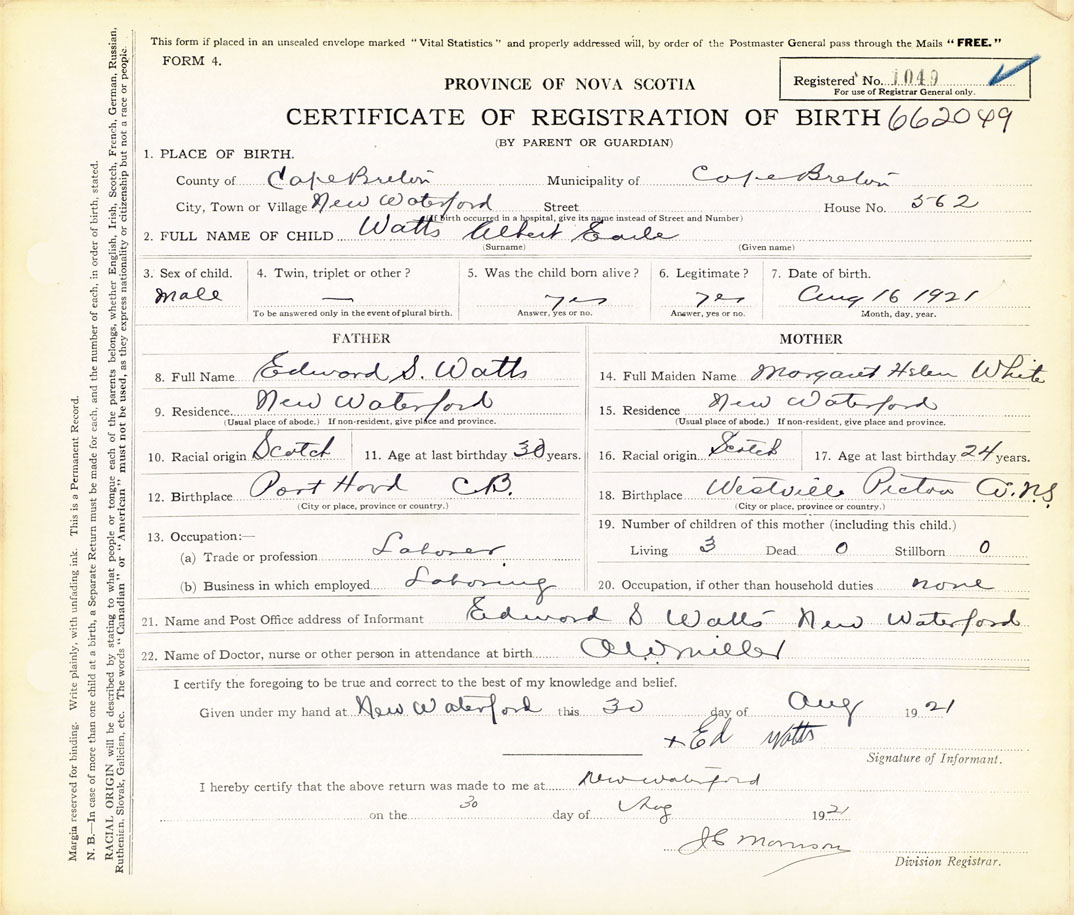 This form if placed in an unsealed envelope marked "Vital Statistics" and properly addressed will, by order of the Postmaster General pass through the Mails "FREE."
FORM 4.
Registered No. 1049
For use of Registrar General only.
PROVINCE OF NOVA SCOTIA
CERTIFICATE OF REGISTRATION OF BIRTH 662049
(BY PARENT OR GUARDIAN)
1. PLACE OF BIRTH.
County of Cape Breton Municipality of Cape Breton
City, Town or Village New Waterford Street House No. 562
(If birth occurred in a hospital, give its name instead of Street and Number)
2. FULL NAME OF CHILD Watts Albert Earle
(Surname) (Given name)
3. Sex of child. 4. Twin, triplet or other? 5. Was the child born alive? 6. Legitimate? 7. Date of birth.
Male — yes yes Aug 16 1921
To be answered only in the event of plural birth. Answer, yes or no. Answer, yes or no. Month, day, year.
FATHER MOTHER
8. Full Name Edward S. Watts 14. Full Maiden Name Margaret Helen White
9. Residence New Waterford 15. Residence New Waterford
(Usual place of abode.) If non-resident, give place and province. (Usual place of abode.) If non-resident, give place and province.
10. Racial origin Scotch 11. Age at last birthday 30 years. 16. Racial origin Scotch 17. Age at last birthday 24 years.
12. Birthplace Port Hood C.B. 18. Birthplace Westville Pictou Co. N.S.
(City or place, province or country.) (City or place, province or country.)
13. Occupation:— 19. Number of children of this mother (including this child.)
(a) Trade or profession Laborer Living 3 Dead 0 Stillborn 0
(b) Business in which employed Laboring 20. Occupation, if other than household duties none
21. Name and Post Office address of Informant Edward S Watts New Waterford
22. Name of Doctor, nurse or other person in attendance at birth Miller
I certify the foregoing to be true and correct to the best of my knowledge and belief.
Given under my hand at New Waterford this 30 day of Aug 1921
+ Ed Watts
Signature of Informant.
I hereby certify that the above return was made to me at New Waterford
on the 30 day of Aug 1921
J C Morrison
Division Registrar.
Margin reserved for binding. Write plainly, with unfading ink. This is a Permanent Record.
N. B.—In case of more than one child at a birth, a Separate Return must be made for each, and the number of each, in order of birth, stated.
RACIAL ORIGIN will be described by stating to what people or tongue each of the parents belongs, whether English, Irish, Scotch, French, German, Russian,
Ruthenian, Slovak, Galician, etc. The words "Canadian" or "American" must not be used, as they express nationality or citizenship but not a race or people.